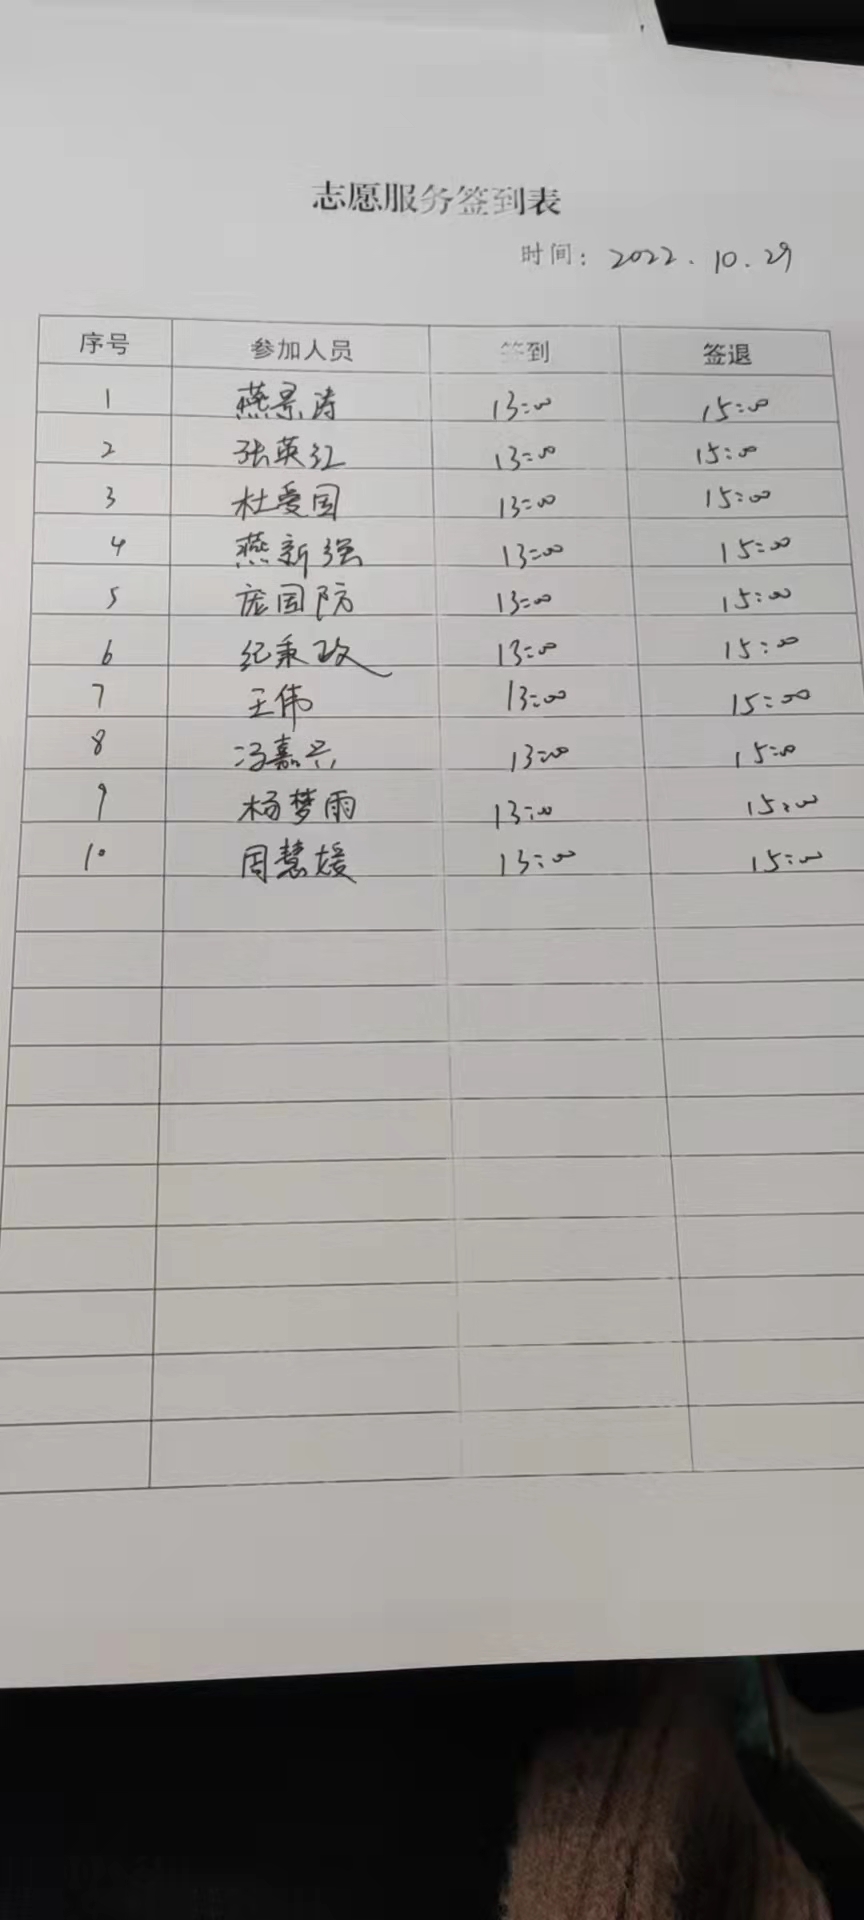 志愿服务签到表
时间：2022.10.29
序号 参加人员 签到 签退
1 燕景涛 13:00 15:00
2 张英红 13:00 15:00
3 杜爱国 13:00 15:00
4 燕新强 13:00 15:00
5 庞国防 13:00 15:00
6 纪秉政 13:00 15:00
7 王伟 13:00 15:00
8 冯嘉兴 13:00 15:00
9 杨梦雨 13:00 15:00
10 周慧媛 13:00 15:00